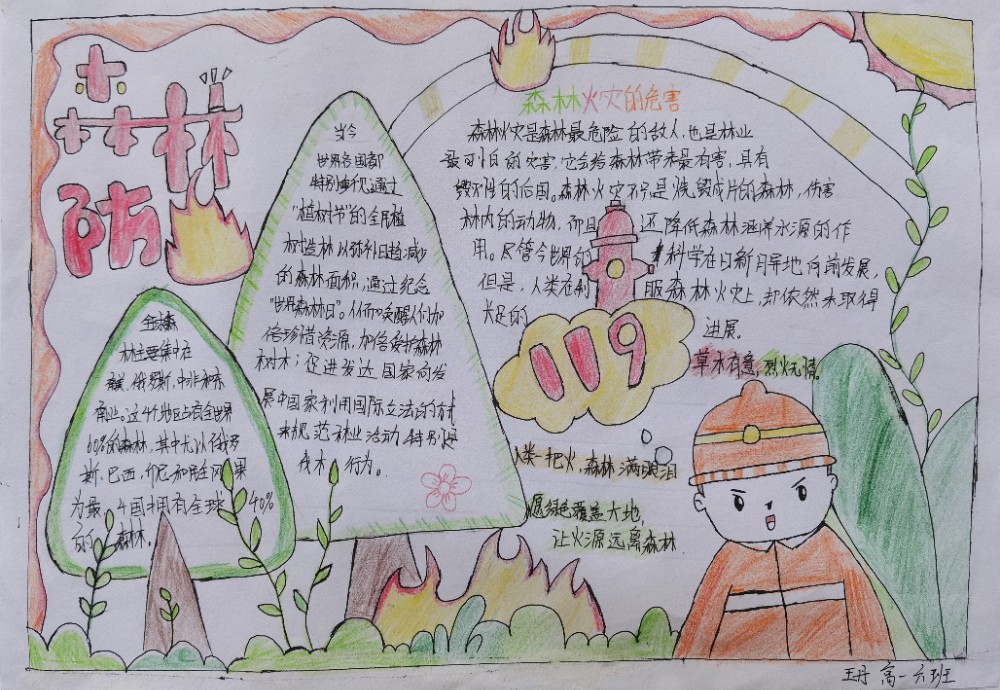 森林
防
当今
世界各国都
特别重视通过
"植树节"的全民植
树造林以弥补日趋减少
的森林面积,通过纪念
"世界森林日"。从而唤醒人们加
倍珍惜资源,加倍爱护森林
树木;促进发达国家向发
展中国家利用国际立法的方
来规范林业活动,特别是
伐木行为。
全球森
林主要集中在
南美、俄罗斯、中非和东
南亚。这4个地区占有全世界
60%的森林,其中尤以俄罗
斯、巴西、印尼和刚果
为最,4国拥有全球40%
的森林。
森林火灾的危害
森林火灾是森林最危险的敌人,也是林业
最可怕的灾害,它会给森林带来最有害,具有
毁灭性的后果。森林火灾不只是烧毁成片的森林,伤害
林内的动物,而且还降低森林涵养水源的作
用。尽管今世界的科学在日新月异地向前发展,
但是,人类在制服森林火灾上,却依然未取得
长足的进展。
119
草木有意,烈火无情。
人类一把火,森林满眼泪
愿绿色覆盖大地,
让火源远离森林
高一六班